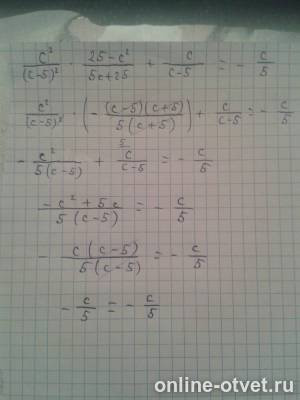 c²/(c-5)² · (25-c²)/(5c+25) + c/(c-5) = - c/5
c²/(c-5)² · (- (c-5)(c+5)/5(c+5)) + c/(c-5) = - c/5
- c²/5(c-5) + ⁵c/(c-5) = - c/5
(-c²+5c)/5(c-5) = - c/5
- c(c-5)/5(c-5) = - c/5
- c/5 = - c/5
online-otvet.ru